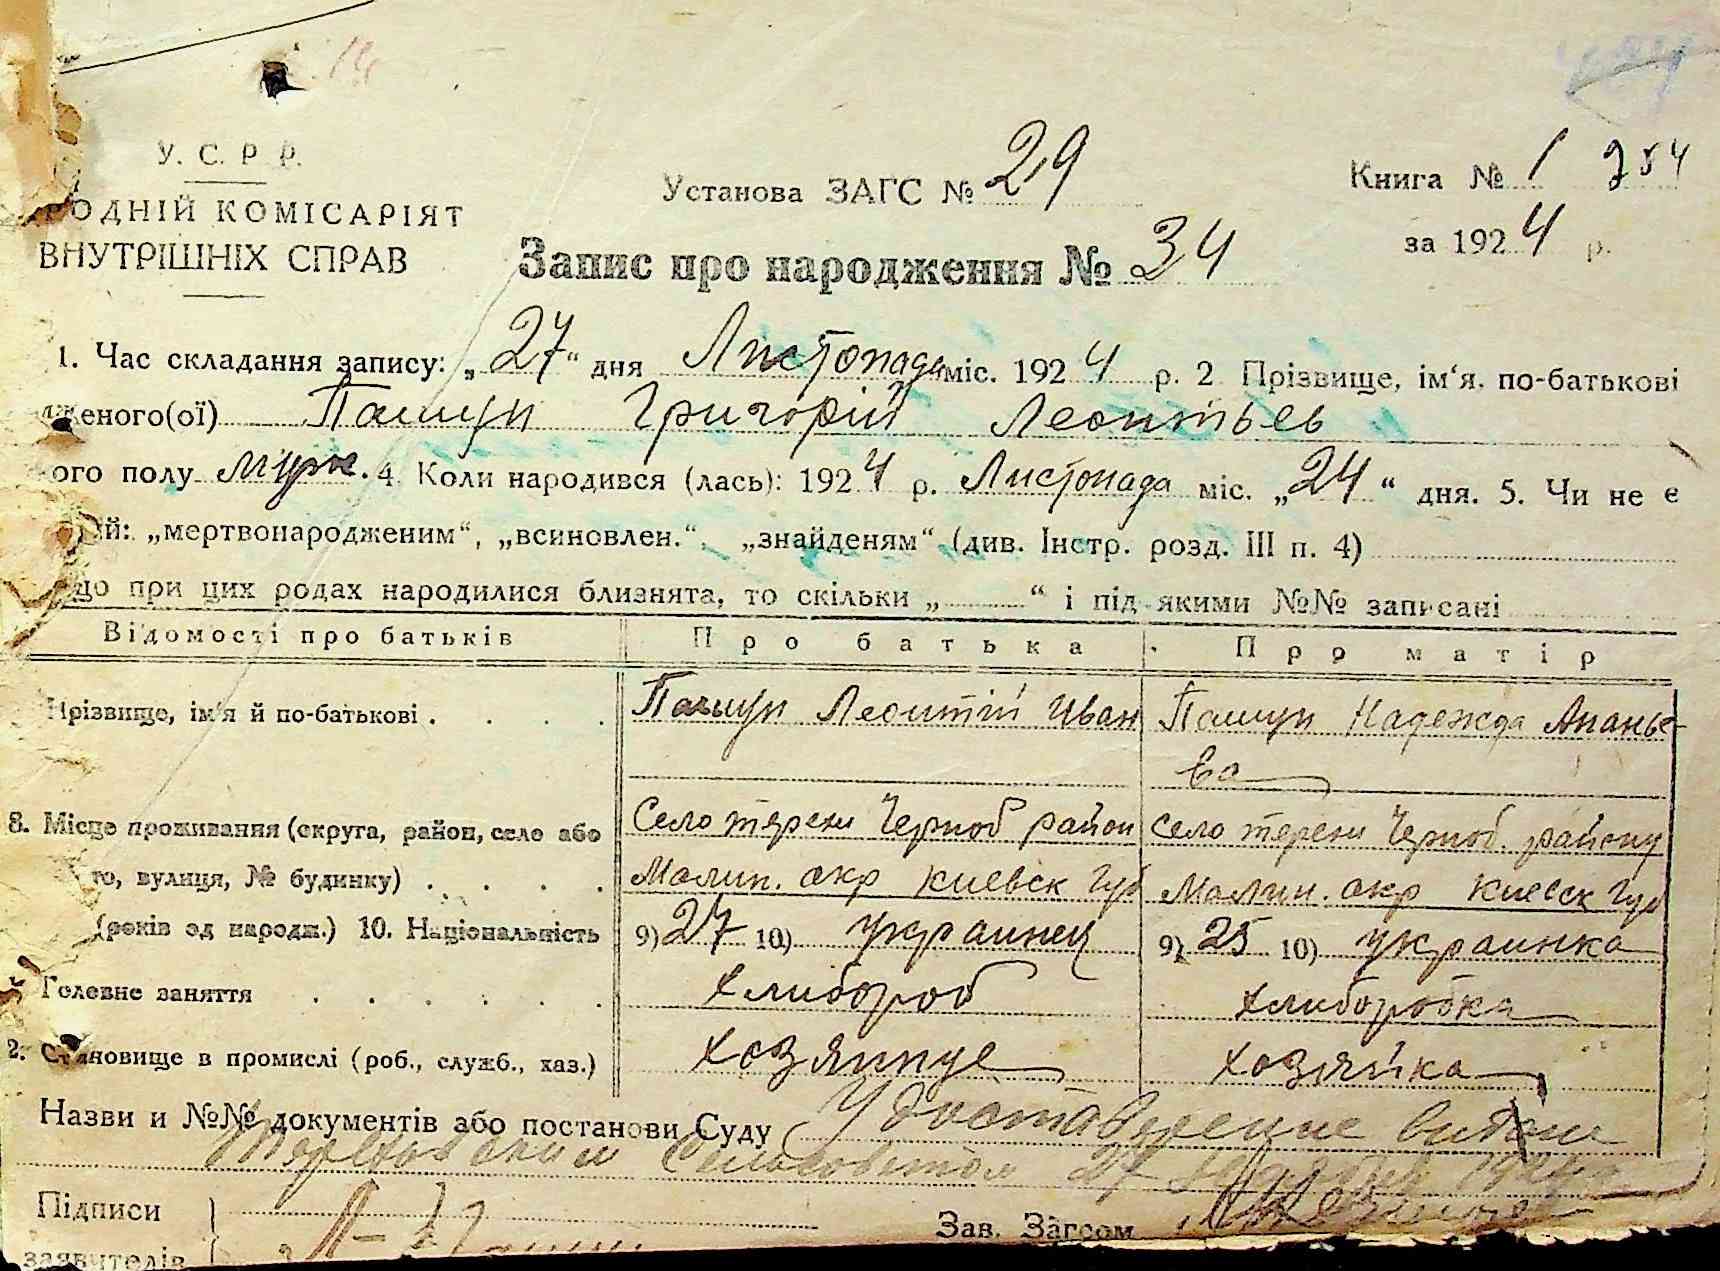 У. С. Р. Р.
Установа ЗАГС № 29
Книга № 1 254
РОДНІЙ КОМІСАРІЯТ
за 1924 р.
ВНУТРІШНІХ СПРАВ
Запис про народження № 34
1. Час складання запису: „27“ дня Листопада міс. 1924 р. 2 Прізвище, ім‘я, по-батькові
женого(ої) Пашун Григорій Леонтьев
ого полу муж. 4. Коли народився (лась): 1924 р. Листопада міс. „24“ дня. 5. Чи не є
ій: „мертвонародженим“, „всиновлен.“, „знайденям“ (див. Інстр. розд. III п. 4)
що при цих родах народилися близнята, то скільки „ “ і під якими №№ записані
Відомості про батьків Про батька Про матір
Прізвище, ім‘я й по-батькові . . . . Пашун Леонтій Иван Пашун Надежда Ананье
ва
8. Місце проживання (округа, район, село або Село терехи Черноб район Село терехи Черноб. району
то, вулиця, № будинку) . . . . Малин. окр Киевск Губ Малин. окр Киевск Губ
(років од народж.) 10. Національність 9) 27 10) украинец 9) 25 10) украинка
Головне заняття . . . . . . хлибороб хлиборобка
2. Становище в промислі (роб., служб., хаз.) хозяин хозяйка
Назви и №№ документів або постанови Суду Удостоверение
Сельсоветом 27
Підписи
Зав. Загсом
заявителів